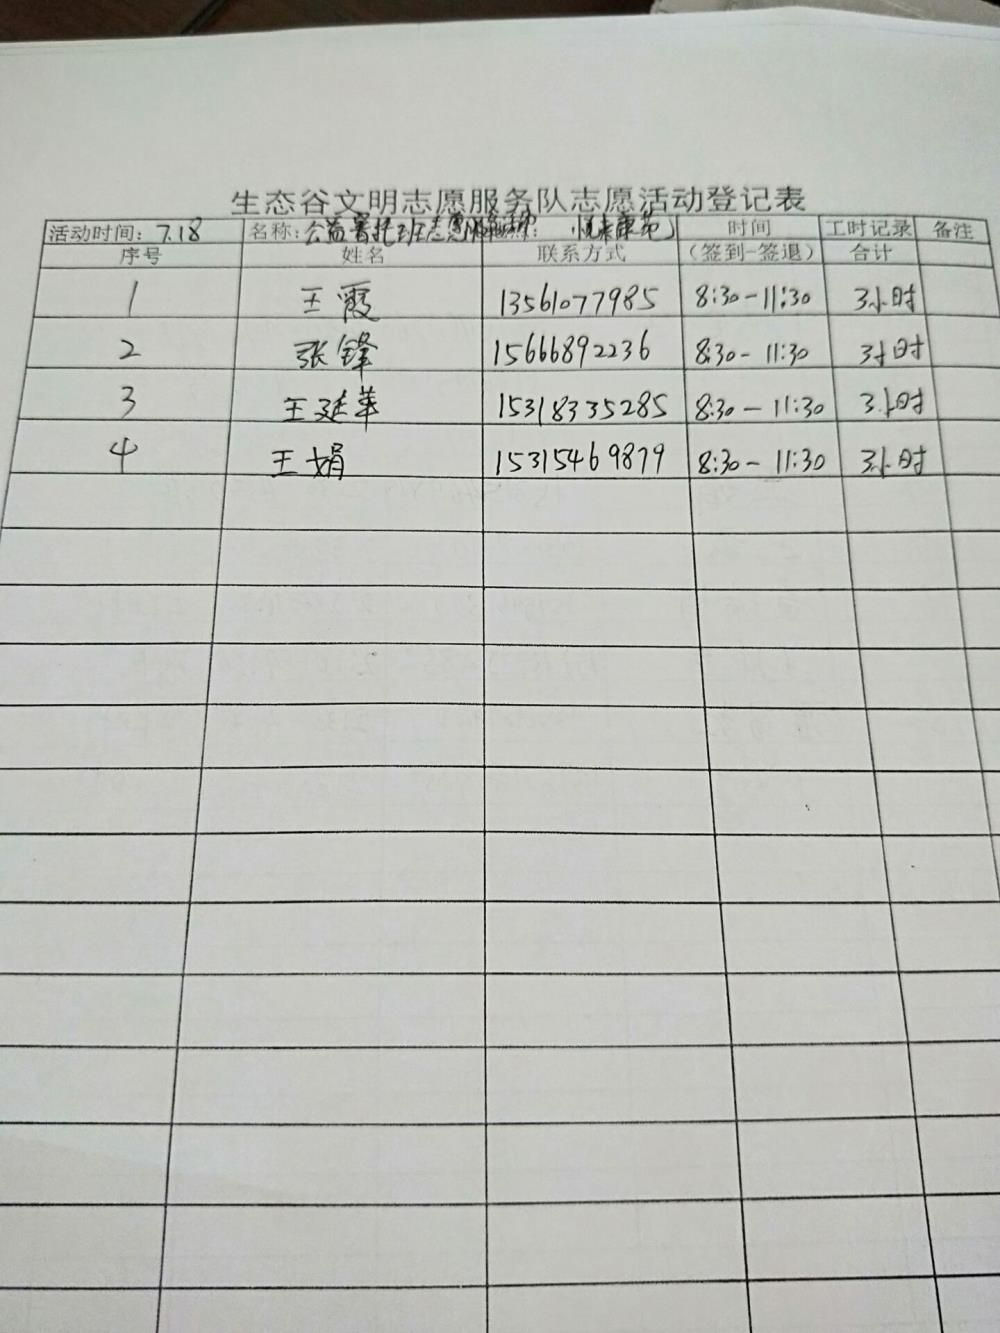 生态谷文明志愿服务队志愿活动登记表
活动时间：7.18 名称：公益暑托班志愿服务活动 悦来康苑 时间 工时记录 备注
序号 姓名 联系方式 （签到-签退） 合计
1 王霞 13561077985 8:30-11:30 3小时
2 张锋 15666892236 8:30-11:30 3小时
3 王延苹 15318335285 8:30-11:30 3小时
4 王娟 15315469879 8:30-11:30 3小时